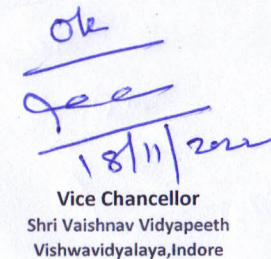 Ok
18/11/2022
Vice Chancellor
Shri Vaishnav Vidyapeeth
Vishwavidyalaya,Indore